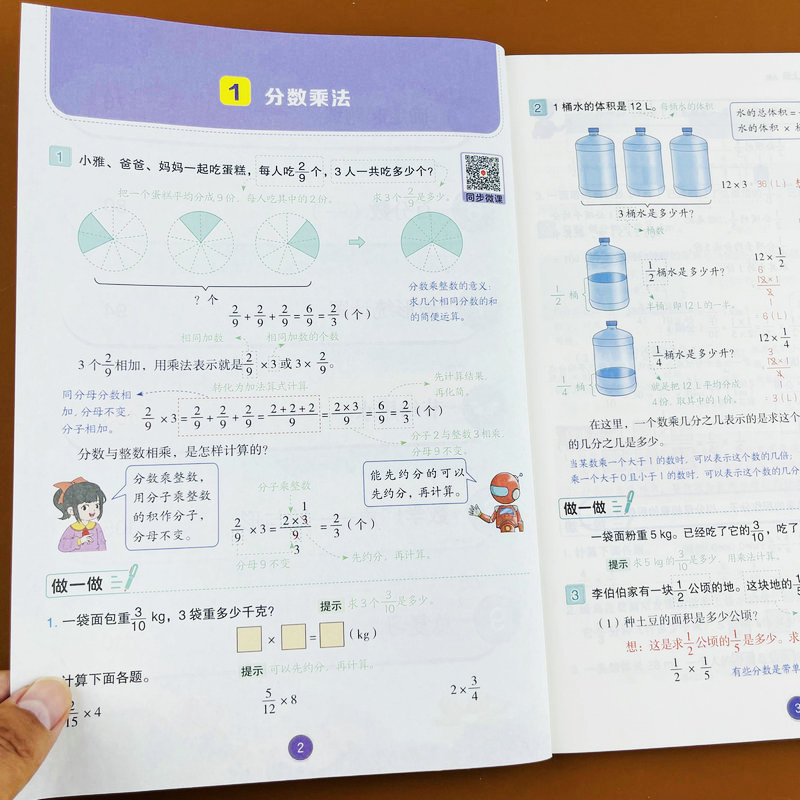 1 分数乘法
1 小雅、爸爸、妈妈一起吃蛋糕，每人吃2/9个，3人一共吃多少个？
同步微课
把一个蛋糕平均分成9份，每人吃其中的2份。
求3个2/9是多少。
？个
分数乘整数的意义：
求几个相同分数的和
的简便运算。
2/9 + 2/9 + 2/9 = 6/9 = 2/3（个）
相同加数 相同加数的个数
3个2/9相加，用乘法表示就是2/9 × 3或3 × 2/9。
转化为加法算式计算
先计算结果，
再化简。
同分母分数相
加，分母不变，
分子相加。
2/9 × 3 = 2/9 + 2/9 + 2/9 = 2+2+2/9 = 2×3/9 = 6/9 = 2/3（个）
分子2与整数3相乘，
分母9不变。
分数与整数相乘，是怎样计算的？
分数乘整数，
用分子乘整数
的积作分子，
分母不变。
能先约分的可以
先约分，再计算。
分子乘整数
1
2/9 × 3 = 2×3/9 = 2/3（个）
3
分母9不变
先约分，再计算。
做一做
1. 一袋面包重3/10 kg，3袋重多少千克？
提示 求3个3/10是多少。
× = （kg）
计算下面各题。
提示 可以先约分，再计算。
2/15 × 4 5/12 × 8 2 × 3/4
2
2 1桶水的体积是12 L。
每桶水的体积
水的总体积=
水的体积 ×
12×3 36（L）
3桶水是多少升？
桶数
1/2桶
1/2桶水是多少升？
半桶，即12 L的一半。
12 × 1/2
6
12×1
2
1
6（L）
1/4桶
1/4桶水是多少升？
就是把12 L平均分成
4份，取其中的1份。
12 × 1/4
3
12×1
4
1
3（L）
在这里，一个数乘几分之几表示的是求这个
的几分之几是多少。
当某数乘一个大于1的数时，可以表示这个数的几倍；
乘一个大于0且小于1的数时，可以表示这个数的几分
做一做
一袋面粉重5 kg。已经吃了它的3/10，吃了
提示 求5 kg的3/10是多少，用乘法计算。
3 李伯伯家有一块1/2公顷的地。这块地的1/5
（1）种土豆的面积是多少公顷？
想：这是求1/2公顷的1/5是多少。求
1/2 × 1/5
有些分数是带单
3